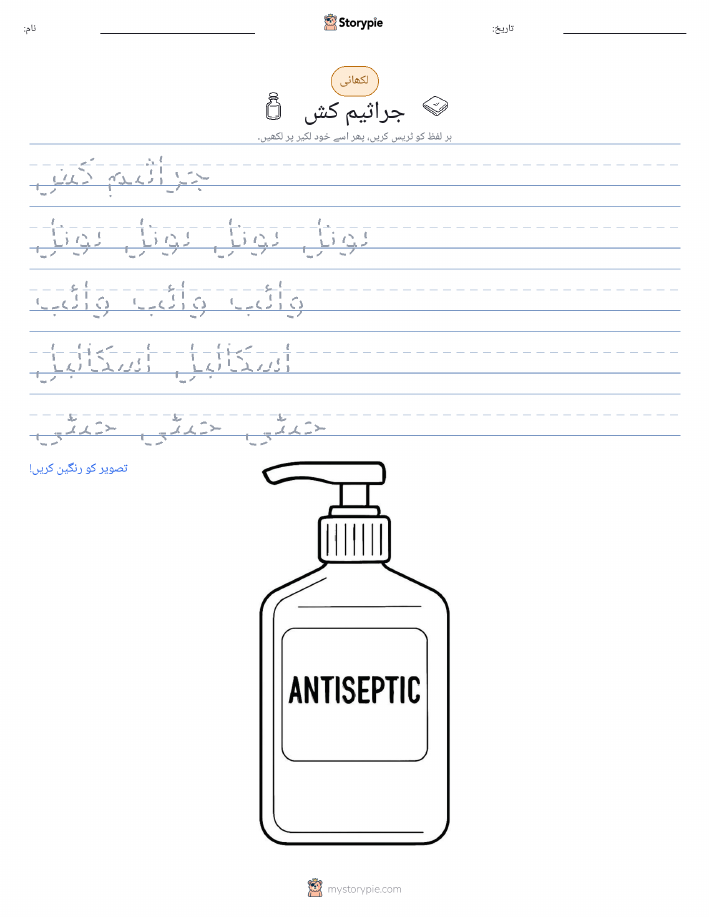 Storypie
نام:
تاریخ:
لکھائی
جراثیم کش
ہر لفظ کو ٹریس کریں، پھر اسے خود لکیر پر لکھیں۔
جراثیم کش
بوتل بوتل بوتل بوتل
وائپ وائپ وائپ
اسکالپل اسکالپل
تصویر کو رنگین کریں!
ANTISEPTIC
mystorypie.com